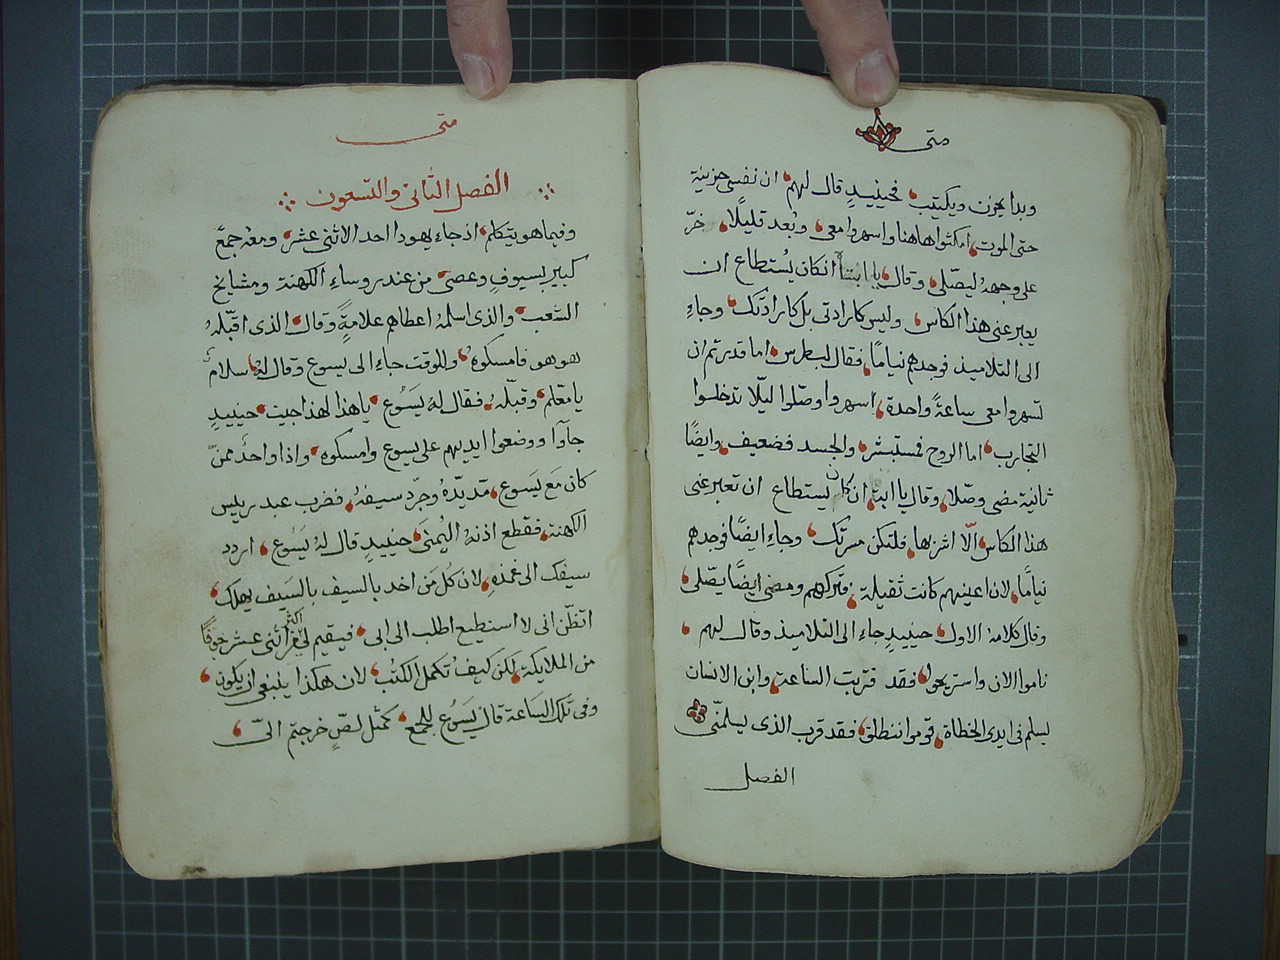 متى
وبدا يحزن ويكتيب فحينيدٍ قال لهم ان نفسى حزينة
حتى الموت امكثوا هاهنا واسهروا معى وبعد قليلًا خرّ
على وجههُ ليصّلى وقال يا ابتتاْ انكان يُستطاع ان
يعبر عنى هذا الكاس وليس كارادتى بل كارادتك وجاءِ
الى التلاميذ فوجدهم نيامًا فقال لبطرس اما قدرتم ان
تسهروا معى ساعةً واحدة اسهروا وصلوا ليّلا تدخلوا
التجارب اما الروح فمستبشر والجسد فضعيف وايضًا
ثانية مضى وصّلا وقال يا ابتِ ان كان يستطاع ان تعبر عنى
هذا الكاس الّا اشربها فلتكن مسرتك وجاءِ ايضًا فوجدهم
نيامًا لان اعينهم كانت ثقيلة فتركهم ومضى ايضًا يصّلى
وقال كلامهُ الاول حينيدٍ جاء الى التلاميذ وقال لهم
ناموا الان واستريحوا فقد قربت الساعة وابن الانسان
يسلم فى ايدى الخطاة قوموا ننطلق فقد قرب الذى يسلمنّى
الفصل
متى
الفصل الثانى والتسعون
وفيما هو يتكلم اذ جاء يهودا احد الاثنى عشر ومعهُ جمعً
كبير بسيوفٍ وعصى من عند روساءِ الكهنة ومشايخ
الشعب والذى اسلمهُ اعطاهم علامةً وقال الذى اقبّلهُ
هو هو فامسكوهُ وللوقت جاءِ الى يسوع وقال لهُ سلامٌ
يا معّلم وقبّلهُ فقال لهُ يَسُوع يا هذا لهذا جيت حينيدٍ
جآوا ووضعوا ايديهم على يسوع وامسكوه واذا واحدٌ ممنّ
كان مَع يَسوع مّد يدّهُ وجرّد سيفهُ فضرب عبد رييس
الكهنة فقطع اذنهُ اليُمنىَ حينيدٍ قال لهُ يَسُوع اردد
سيفك الى غمدهِ لان كلَ مَن اخد بالسيف بالسَيف يهلك
اتظّن انى لا استطيع اطلب الى ابى فيقيم لى اكثر اثنى عشر جوقًا
من الملايكة لكن كيف تكمل الكتب لان هكذا ينبغى ان يكون
وفى تلك الساعة قال يَسُوع للجمع كمثل لصٍ خرجتم الىّ